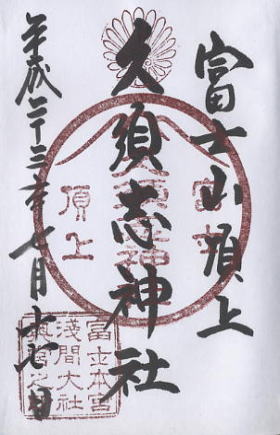 富士山頂上
久須志神社
平成二十三年七月十七日
頂上
富士本宮
浅間大社